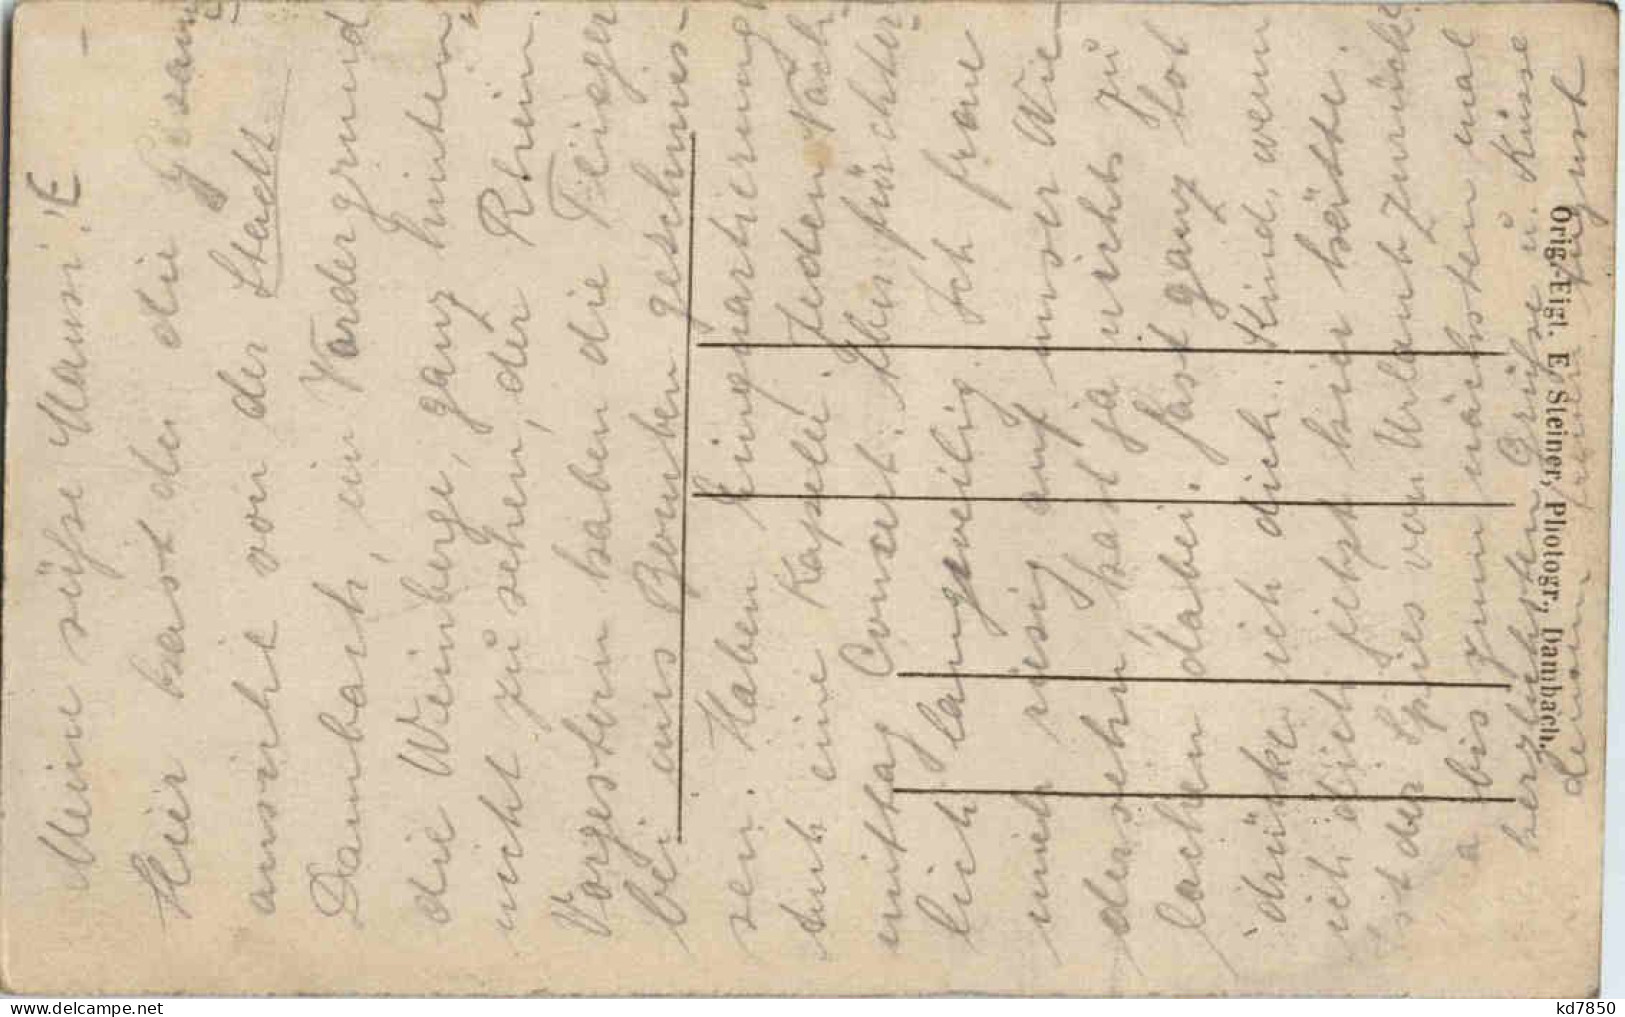 Meine süße Mausi! E
Hier hast du die Gesam-
ansicht von der Stadt
Dambach, im Vordergrund
die Weinberge, ganz hinten,
nicht zu sehen, der Rhein.
Vorgestern haben die Flieger
bei uns Bomben geschmis-
sen. Haben Einquartierung
auch eine Kapelle. Jeden Nach-
mittag Concert. Aber fürchter-
lich langweilig. Ich freue
mich riesig auf unser Wie-
dersehn, hast ja nichts zu
lachen dabei. fast ganz tot
drücke ich dich. Kind, wenn
ich dich jetzt hier hätte.
ist der Spies von Urlaub zurück
bis zum nächsten mal
herzlichsten Grüße u. Küsse
August
Orig. Eigt. E. Steiner, Photogr., Dambach.
kd7850